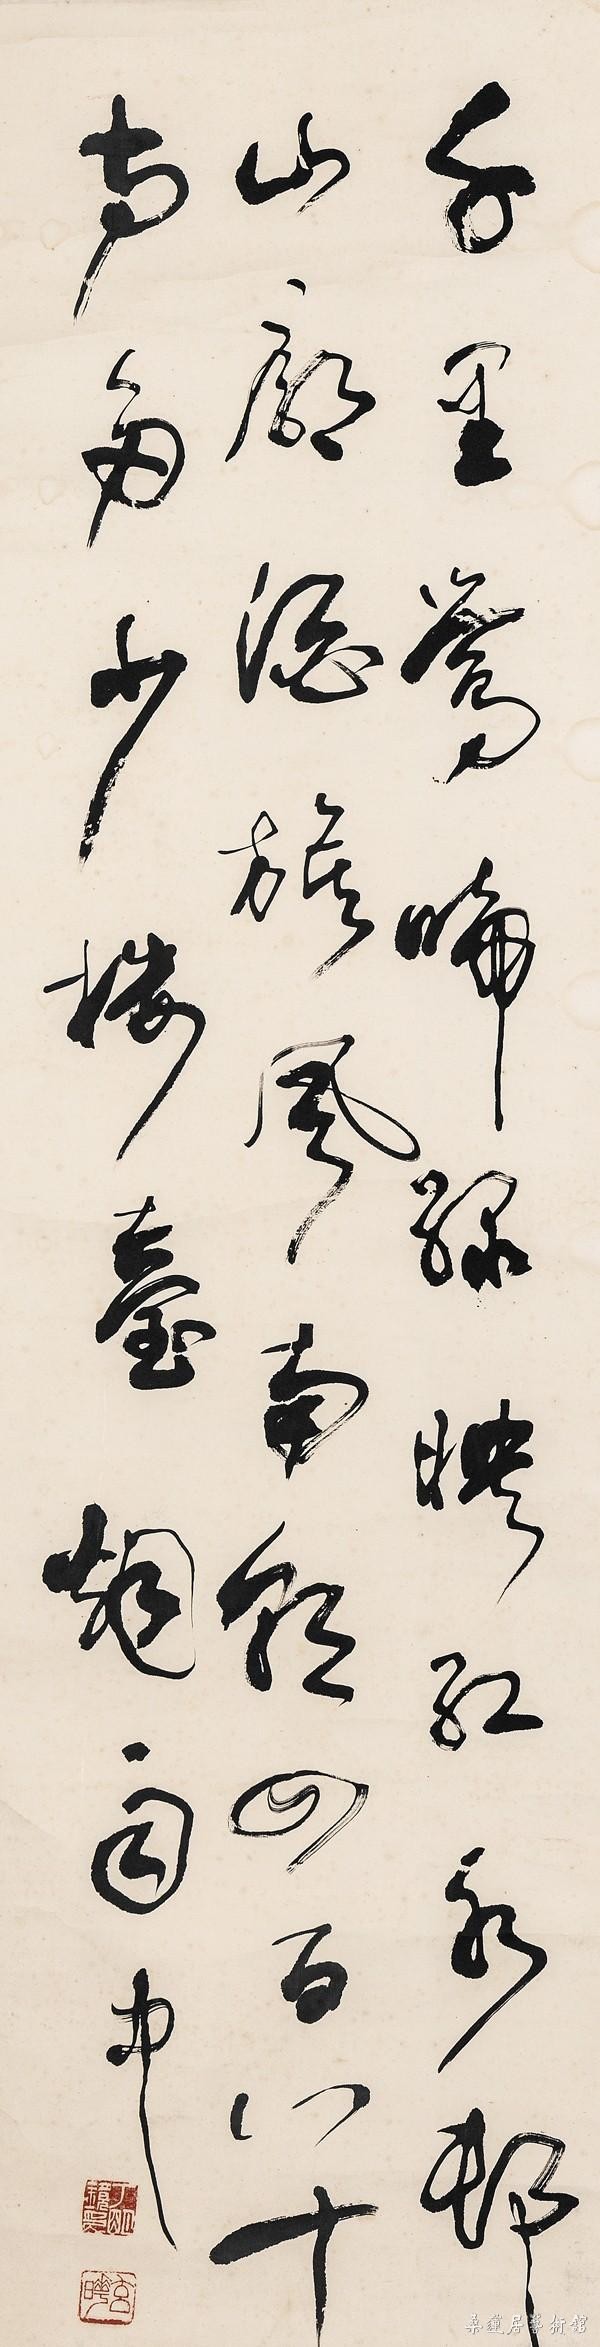 千里鶯啼綠映紅水邨
山郭酒旗風南朝四百八十
寺多少樓臺煙雨中
桑蓮居藝術館